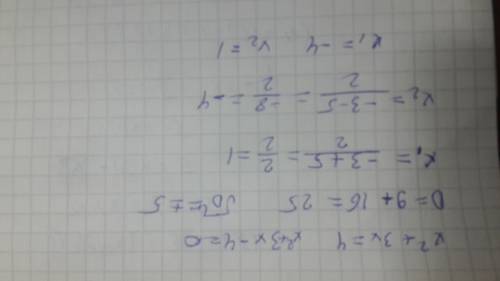 x² + 3x = 4   x²+3x-4=0
D = 9 + 16 = 25   √D = ±5
x₁ = (-3+5)/2 = 2/2 = 1
x₂ = (-3-5)/2 = -8/2 = -4
x₁ = -4   x₂ = 1